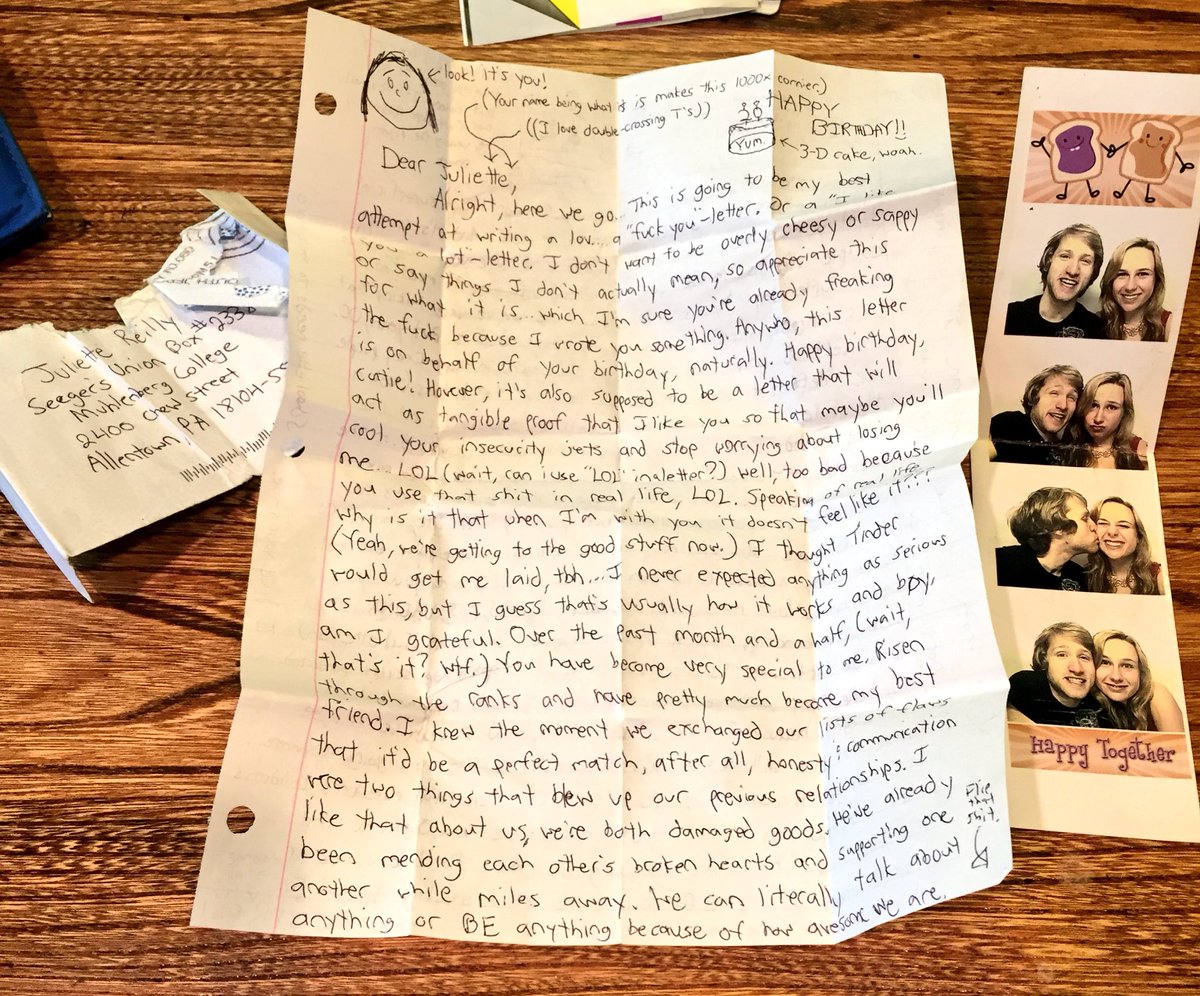 look! It's you!
(Your name being what it is makes this 1000x cornier.)
((I love double-crossing T's.))
HAPPY
BIRTHDAY!!
YUM.
3-D cake, woah.
Dear Juliette,
Alright, here we go... This is going to be my best
attempt at writing a lov... a "fuck you"-letter. Or a "I like
you a lot"-letter. I don't want to be overly cheesy or sappy
or say things I don't actually mean, so appreciate this
for what it is... which I'm sure you're already freaking
the fuck because I wrote you something. Anywho, this letter
is on behalf of your birthday, naturally. Happy birthday,
cutie! However, it's also supposed to be a letter that will
act as tangible proof that I like you so that maybe you'll
cool your insecurity jets and stop worrying about losing
me... LOL (wait, can i use "LOL" in a letter?) Well, too bad because
you use that shit in real life, LOL. Speaking of real life
why is it that when I'm with you it doesn't feel like it???
(Yeah, we're getting to the good stuff now.) I thought Tinder
would get me laid, tbh... I never expected anything as serious
as this, but I guess that's usually how it works and boy,
am I grateful. Over the past month and a half, (wait,
that's it? Wtf.) You have become very special to me. Risen
through the ranks and have pretty much become my best
friend. I knew the moment we exchanged our lists of flaws
that it'd be a perfect match, after all, honesty & communication
were two things that blew up our previous relationships. I
like that about us, we're both damaged goods. We've already
been mending each other's broken hearts and supporting one
another while miles away. We can literally talk about
anything or BE anything because of how awesome we are.
Flip
that
shit.
Juliette Reilly
Seegers Union Box #
Muhlenberg College
2400 Chew Street
Allentown, PA 18104
Happy Together